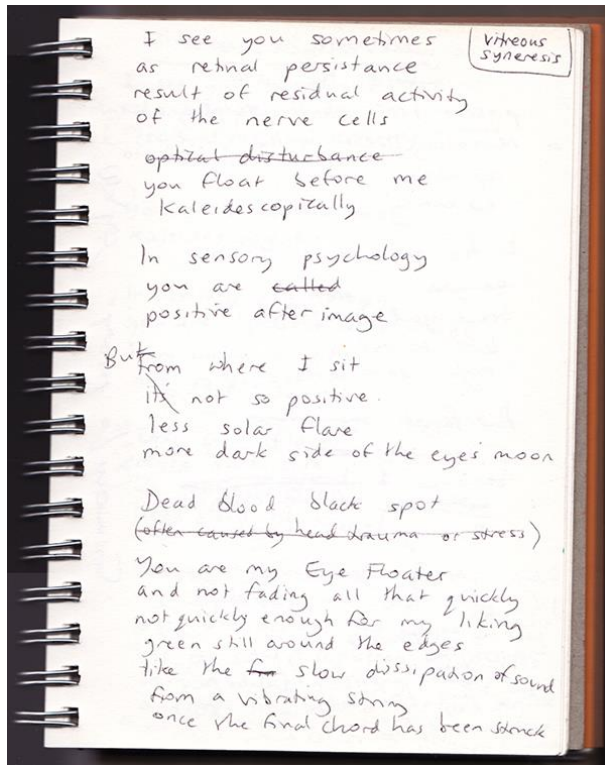 I see you sometimes
vitreous
syneresis
as retinal persistance
result of residual activity
of the nerve cells
optical disturbance
you float before me
Kaleidescopically
In sensory psychology
you are called
positive after image
But from where I sit
it's not so positive.
less solar flare
more dark side of the eyes' moon
Dead blood black spot
(often caused by head trauma or stress)
You are my Eye Floater
and not fading all that quickly
not quickly enough for my liking
green still around the edges
like the slow dissipation of sound
from a vibrating string
once the final chord has been struck